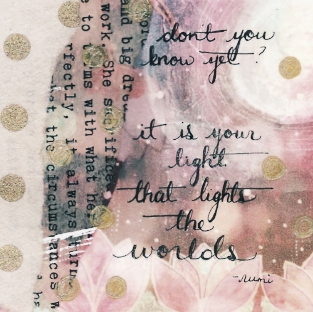 dont you
know yet?
it is your
light
that lights
the
worlds
-rumi
and big dre
work. She sacrifice
e to t ms with what he
rfectly, it always turn
hat the circumstances w